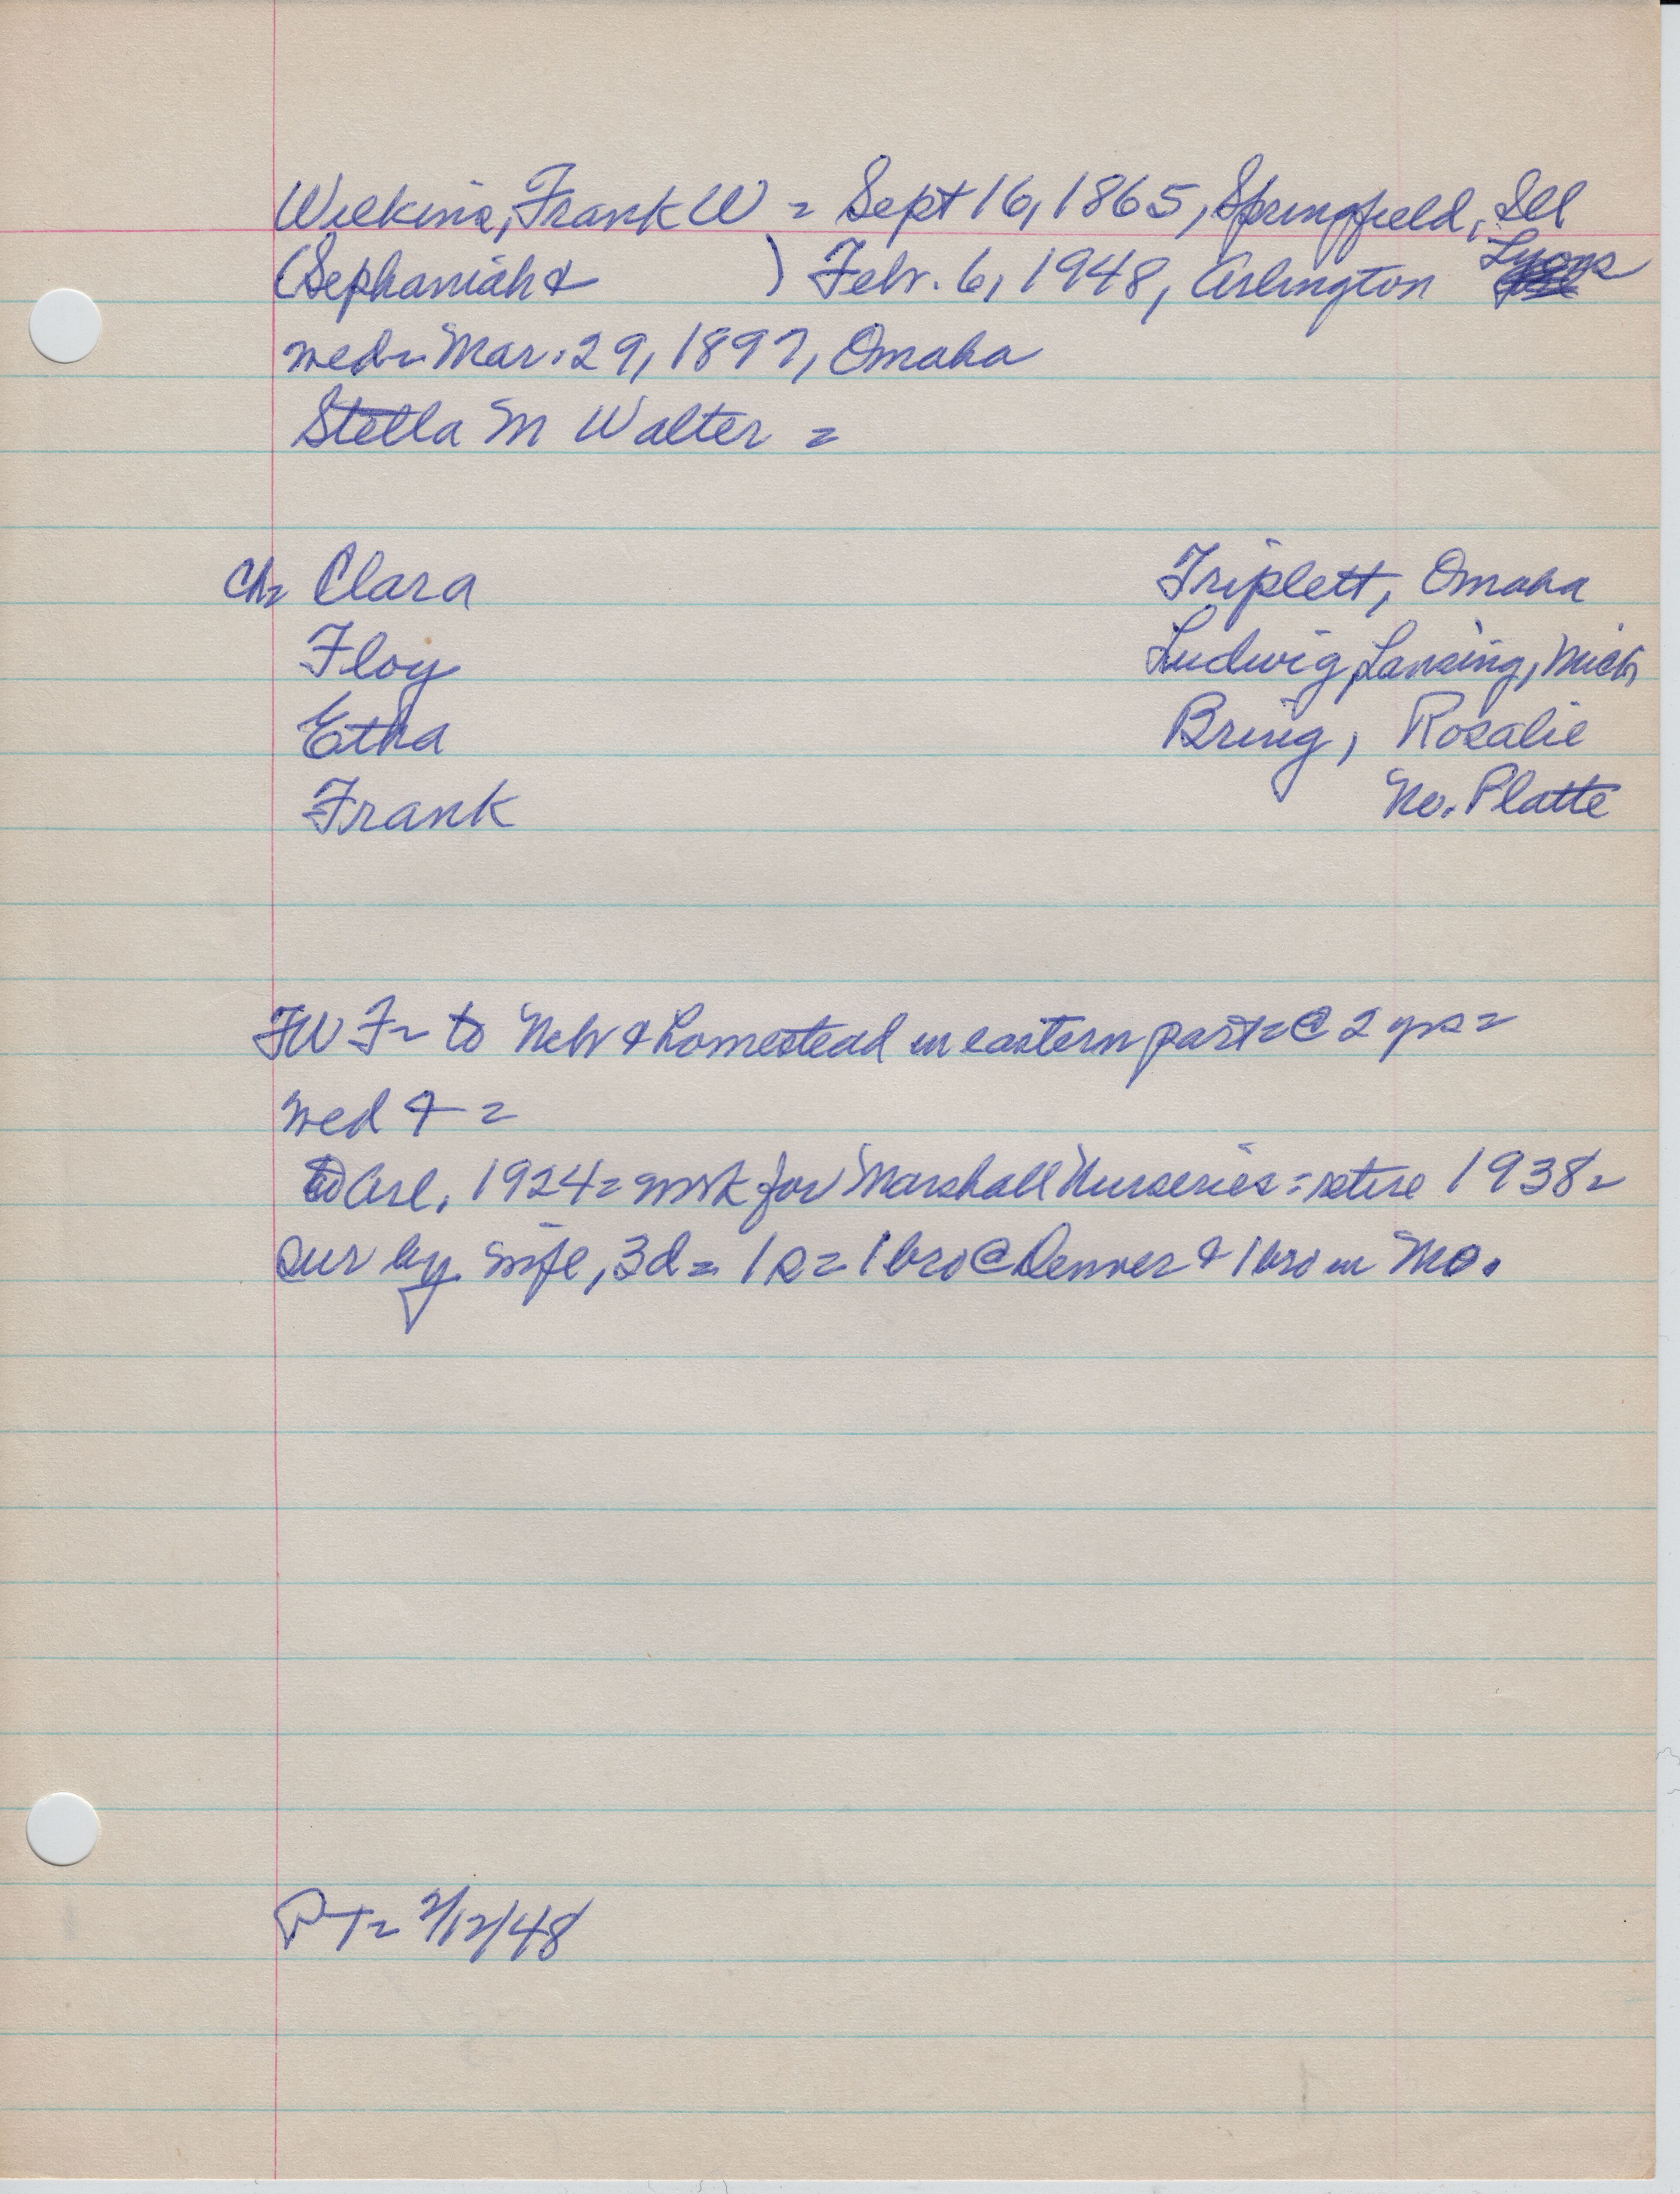 Wilkins, Frank W = Sept 16, 1865, Springfield, Ill
(Sephaniah & ) Febr. 6, 1948, Arlington Lyons
wed = Mar. 29, 1897, Omaha
Stella M Walter =
Ch = Clara Triplett, Omaha
Floy Ludwig, Lansing, Mich
Etha Bring, Rosalie
Frank No. Platte
FW F = to Nebr & homestead in eastern part = @ 2 yrs =
wed & =
to Arl. 1924 = work for Marshall Nurseries = retire 1938 =
sur by wife, 3d = 1s = 1 bro @ Denver & 1 bro in Mo.
PT = 2/12/48